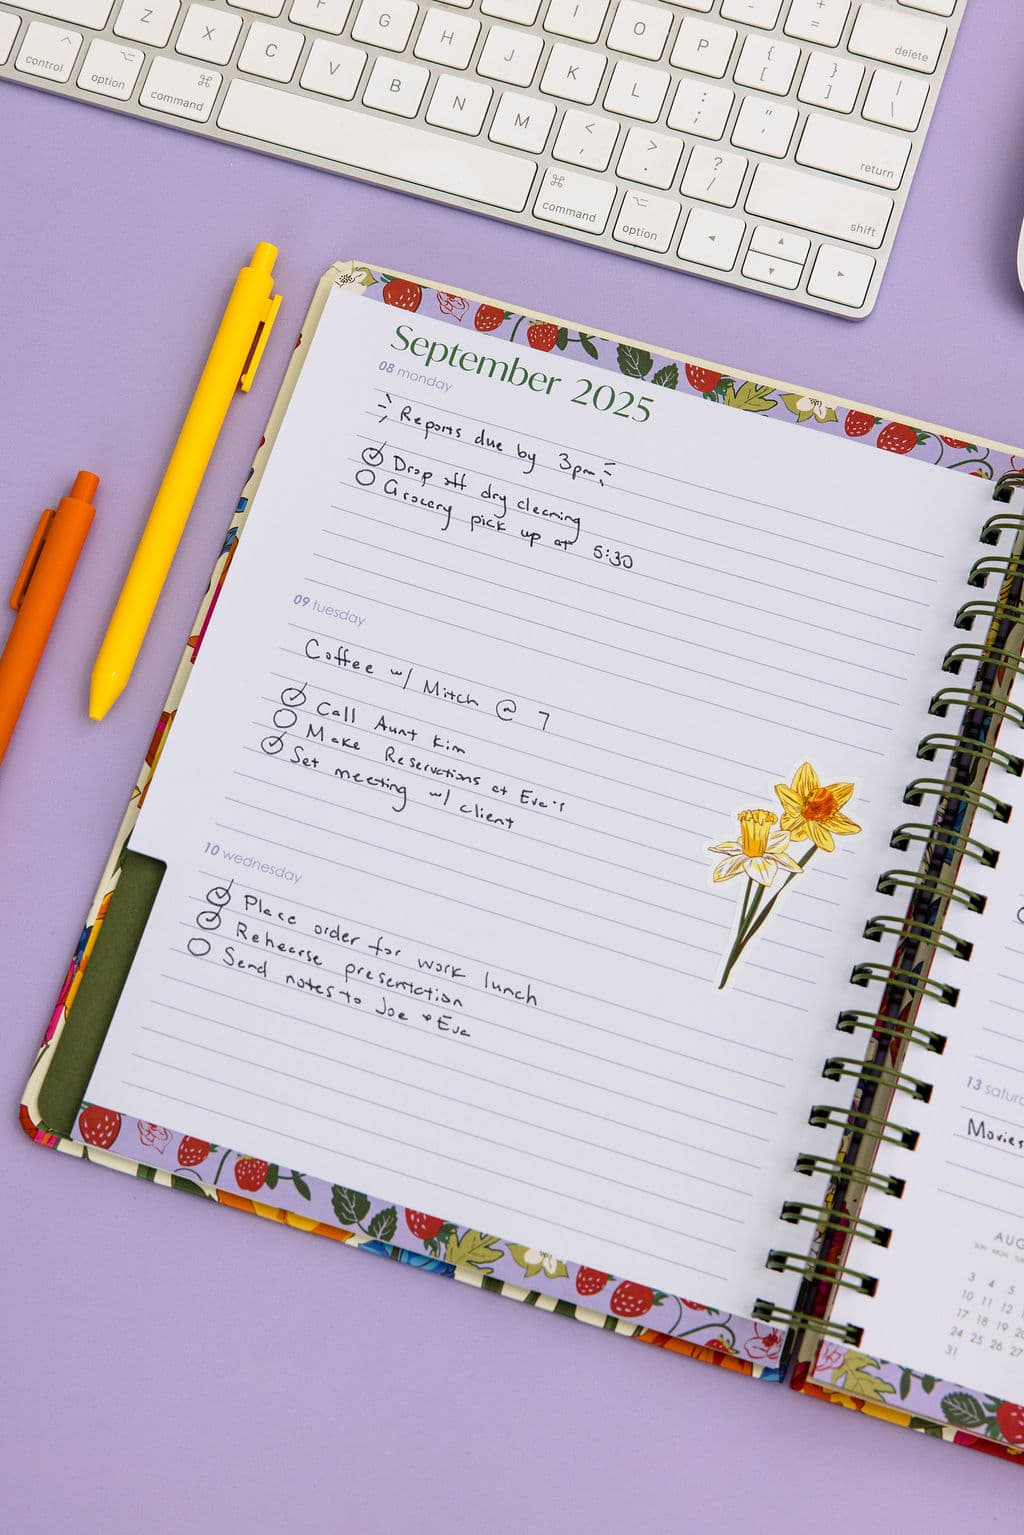 Z X C V F B G N H M J < , K I > . L O ? / : ; P " ' { [ - + = } ] | \ delete
control option command command option return shift
September 2025
08 monday
Reports due by 3pm
Drop off dry cleaning
Grocery pick up at 5:30
09 tuesday
Coffee w/ Mitch @ 7
Call Aunt Kim
Make Reservations at Eva's
Set meeting w/ client
10 wednesday
Place order for work lunch
Rehearse presentation
Send notes to Joe + Eva
13 satur
Movies
AUG
SUN MON
3 4 5
10 11 12
17 18 19
24 25 26 27
31